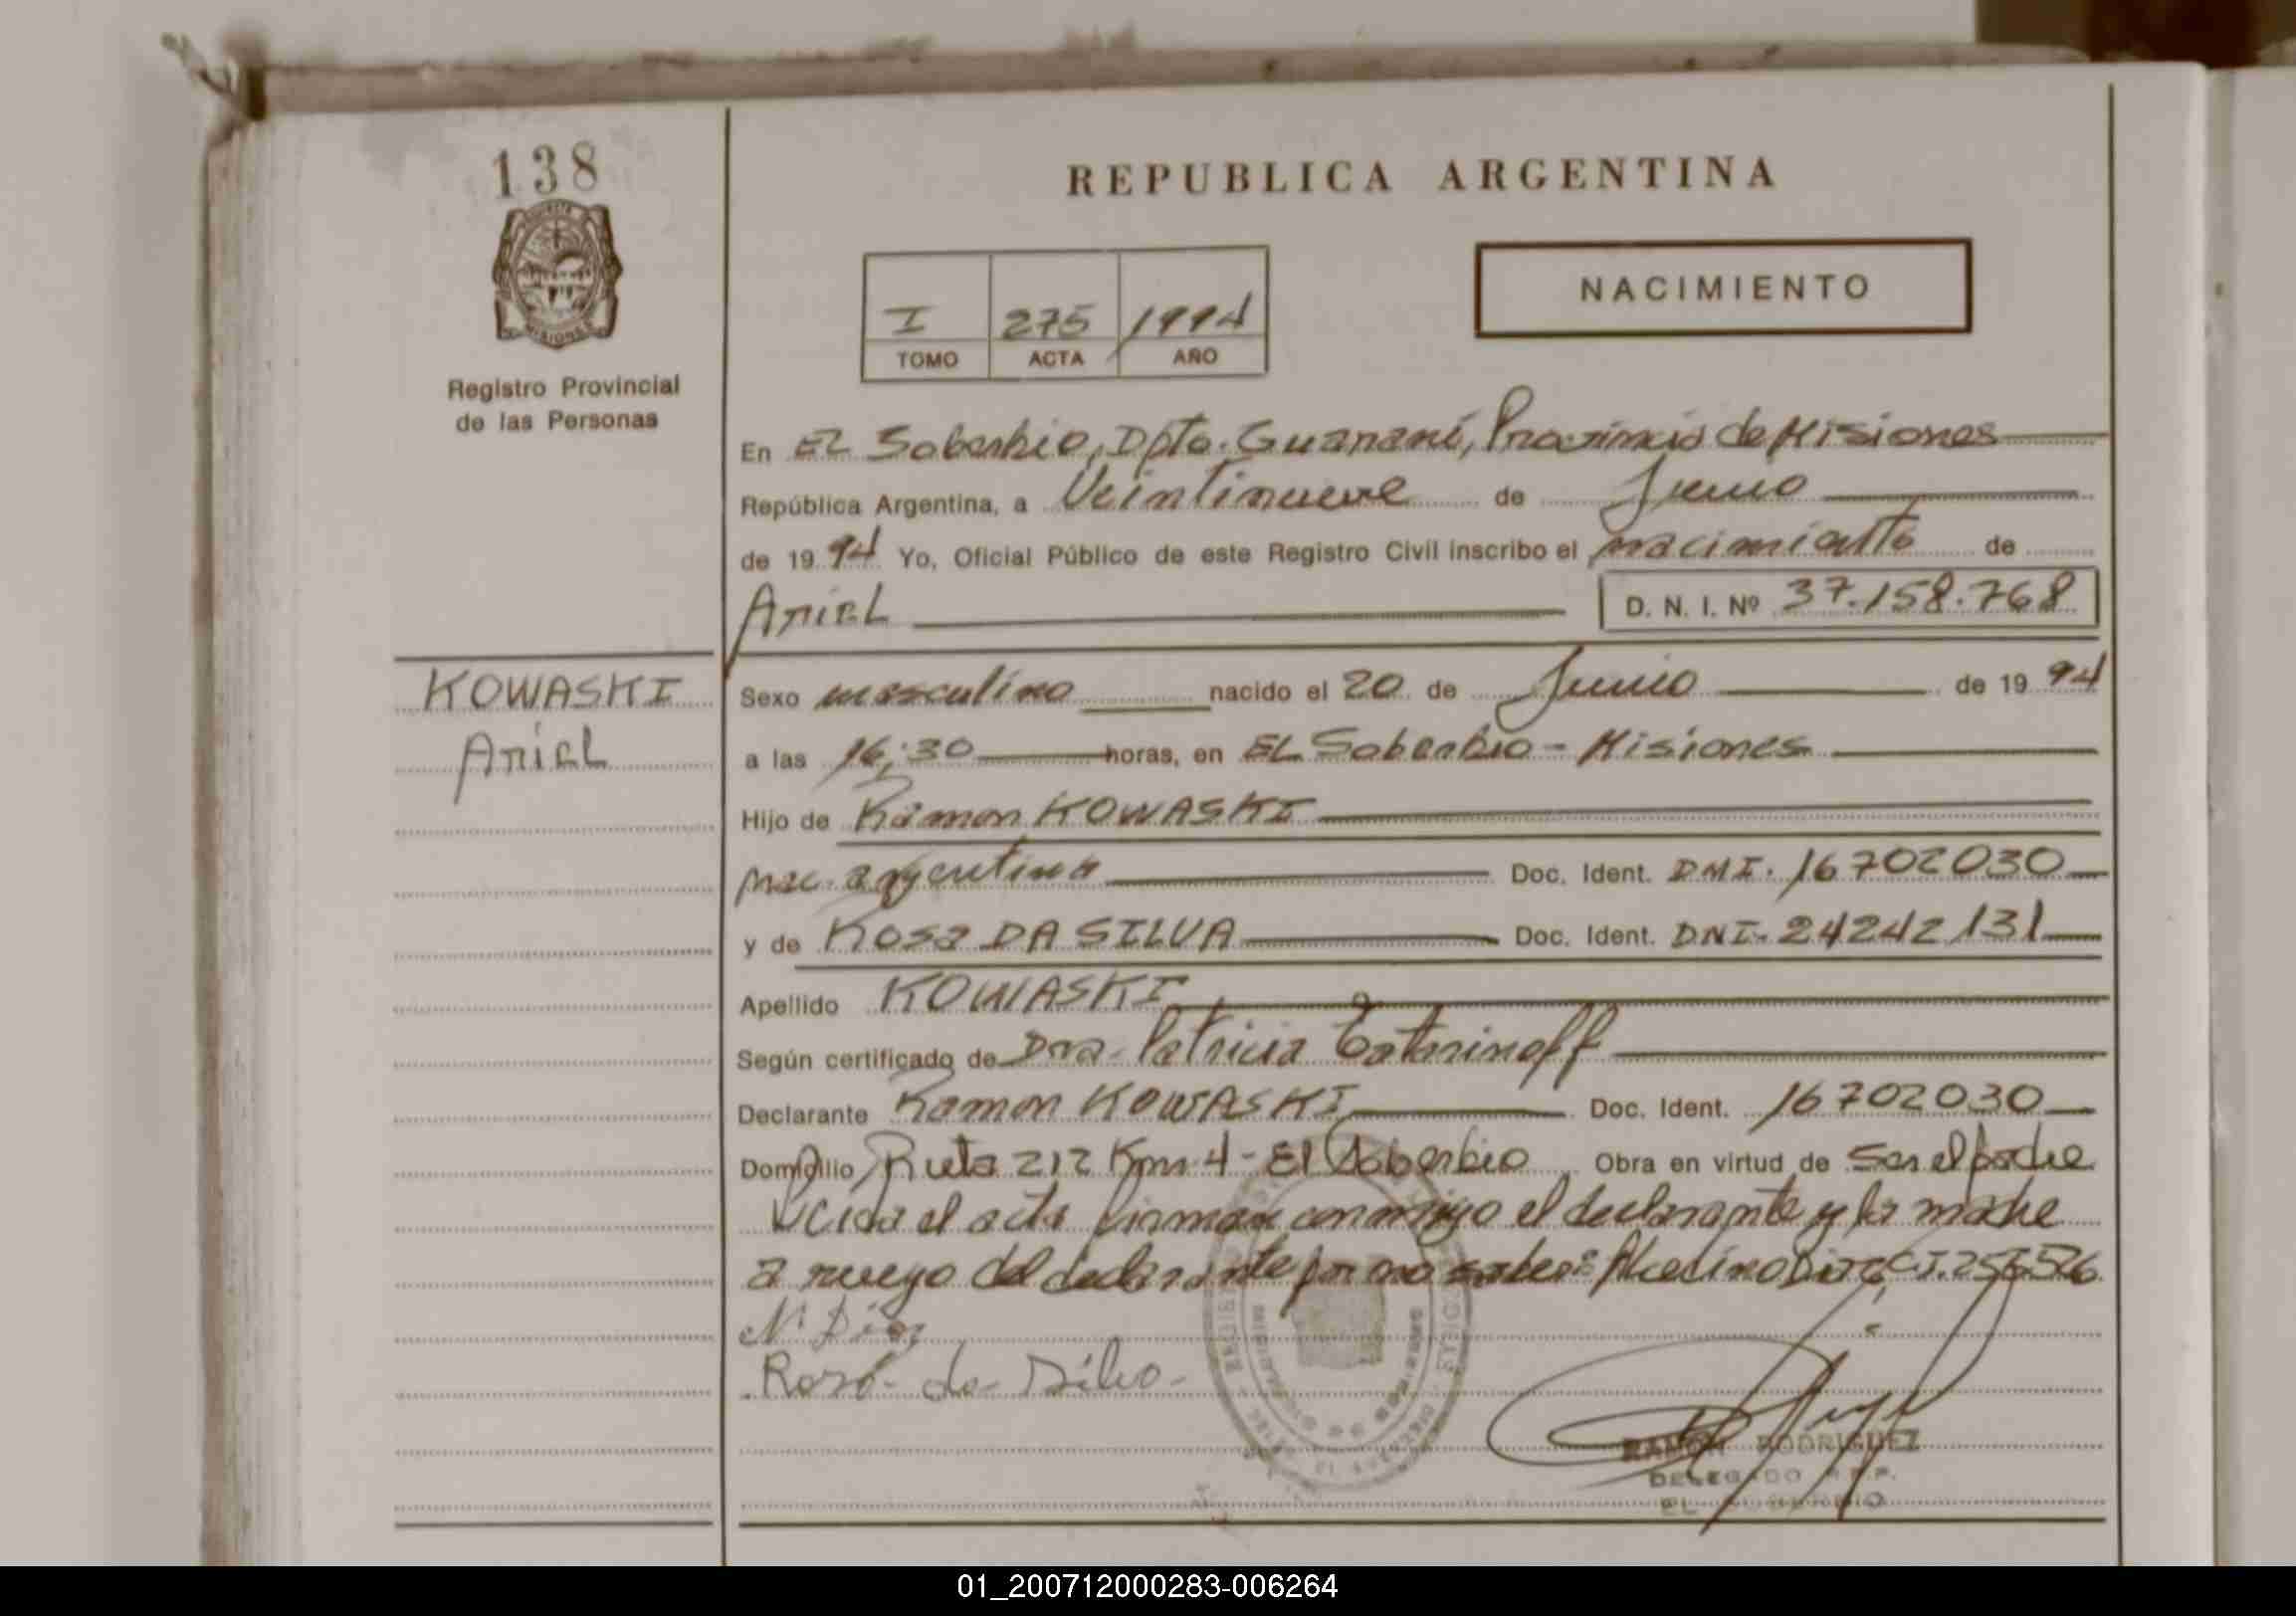 138
MISIONES
Registro Provincial
de las Personas
REPUBLICA ARGENTINA
I 275 1994
TOMO ACTA AÑO
NACIMIENTO
En EL Soberbio, Dpto. Guaraní, Provincia de Misiones
República Argentina, a Veintinueve de Junio
de 1994 Yo, Oficial Público de este Registro Civil inscribo el nacimiento de
Ariel D. N. I. Nº 37.158.768
KOWASKI
Ariel
Sexo masculino nacido el 20 de Junio de 1994
a las 16:30 horas, en EL Soberbio - Misiones
Hijo de Ramon KOWASKI
nac. argentina Doc. Ident. DNI. 16702030
y de Rosa DA SILVA Doc. Ident. DNI. 24242131
Apellido KOWASKI
Según certificado de Dra. Patricia Tatarinoff
Declarante Ramon KOWASKI Doc. Ident. 16702030
Domicilio Ruta 212 Km 4 - El Soberbio Obra en virtud de ser el padre
Leida el acta firman conmigo el declarante y la madre
a ruego del declarante por no saber: Díaz C.I.
N. Díaz
Rosa da Silva
RAMON RODRIGUEZ
DELEGADO R.P.P.
EL SOBERBIO
01_200712000283-006264